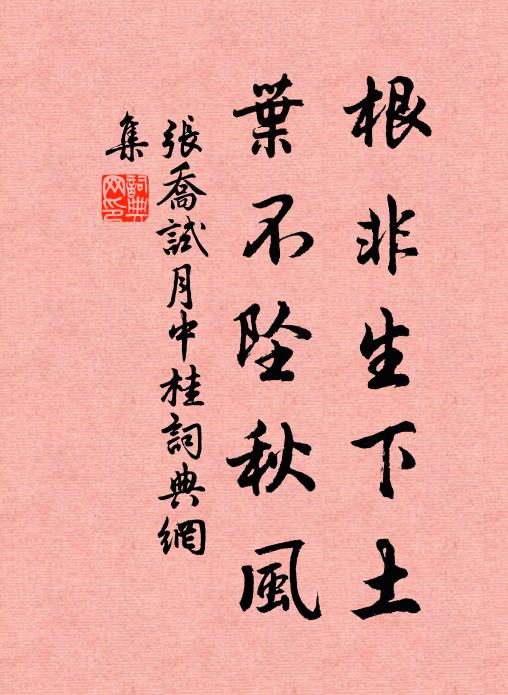 根非生下土
葉不坠秋風
張喬試月中桂詞典網
集
詞典
网印